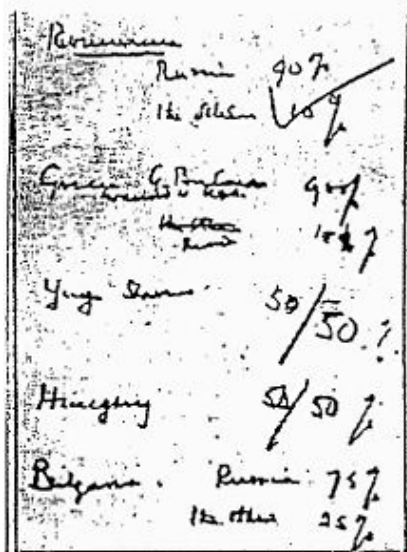 Roumania
Russia 90%
The others 10%
Greece G. Britain 90%
in accord w. USA
The others
Russia 10%
Yugoslavia 50/50 %
Hungary 50/50 %
Bulgaria. Russia 75%
The others 25%